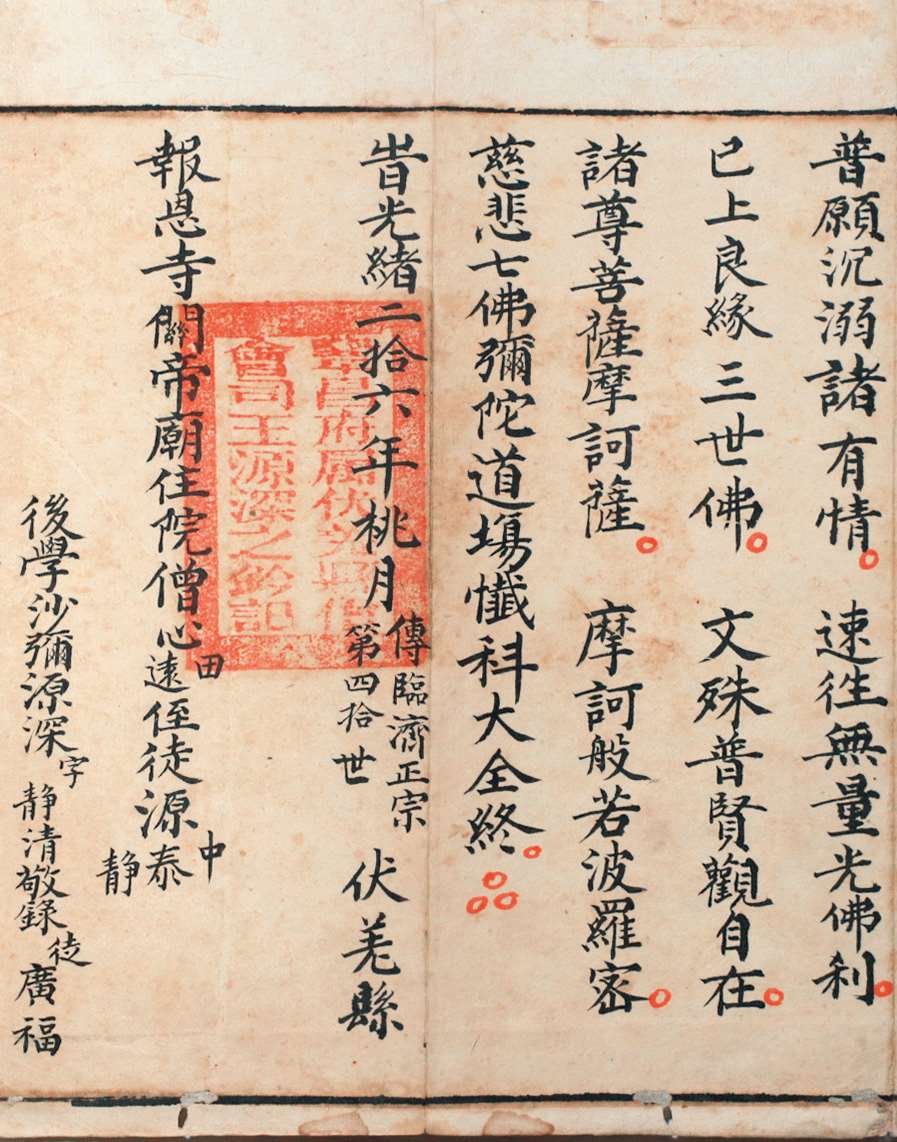 普願沉溺諸有情 速徃無量光佛利
已上良緣三世佛 文殊普賢觀自在
諸尊菩薩摩訶薩 摩訶般若波羅密
慈悲七佛彌陀道塲懺科大全終
旹光緒二拾六年桃月 傳臨濟正宗 第四拾世 伏羌縣
鞏昌府屬伏羌縣僧
會司王源深之鈐記
報恩寺關帝廟住院僧心田遠侄徒源中泰静
後學沙彌源深字静清敬錄徒廣福